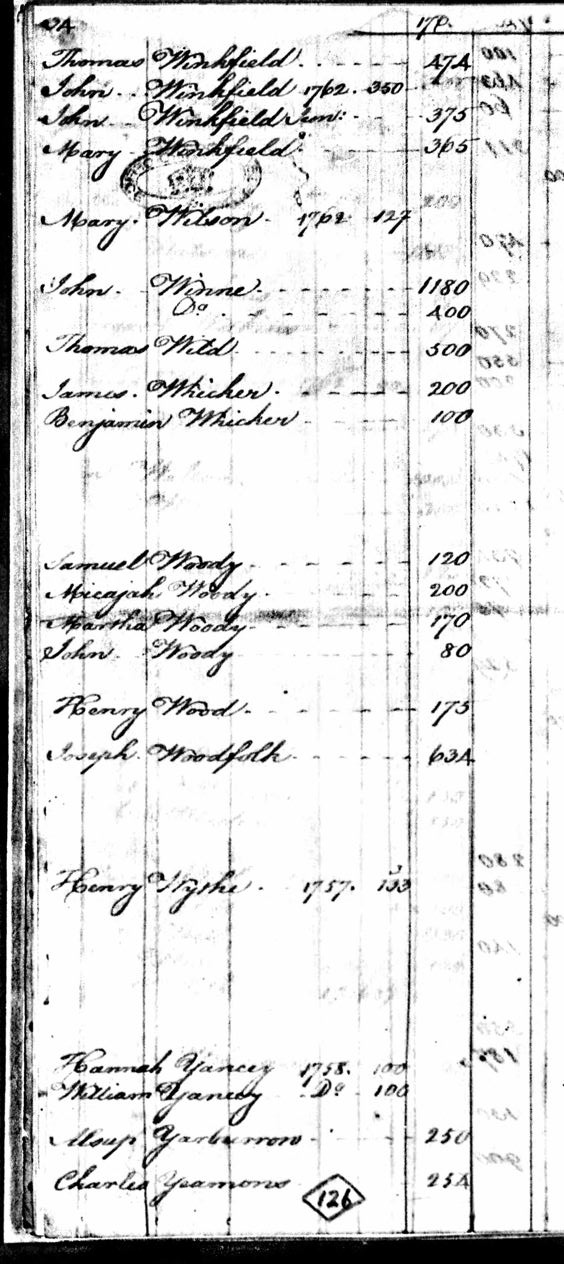 24 17
Thomas Winkfield 474
John Winkfield 1762. 350
John Winkfield Jun: 375
Mary Winkfield 365
Mary Wilson 1762 127
John Winne 1180
Do 400
Thomas Wild 500
James Whicker 200
Benjamin Whicker 100
Samuel Woody 120
Micajah Woody 200
Martha Woody 170
John Woody 80
Henry Wood 175
Joseph Woodfolk 634
Henry Wythe 1757. 133
Hannah Yancey 1758. 100
William Yancey Do 100
Alsup Yarburrow 250
Charles Yeamons 254
126